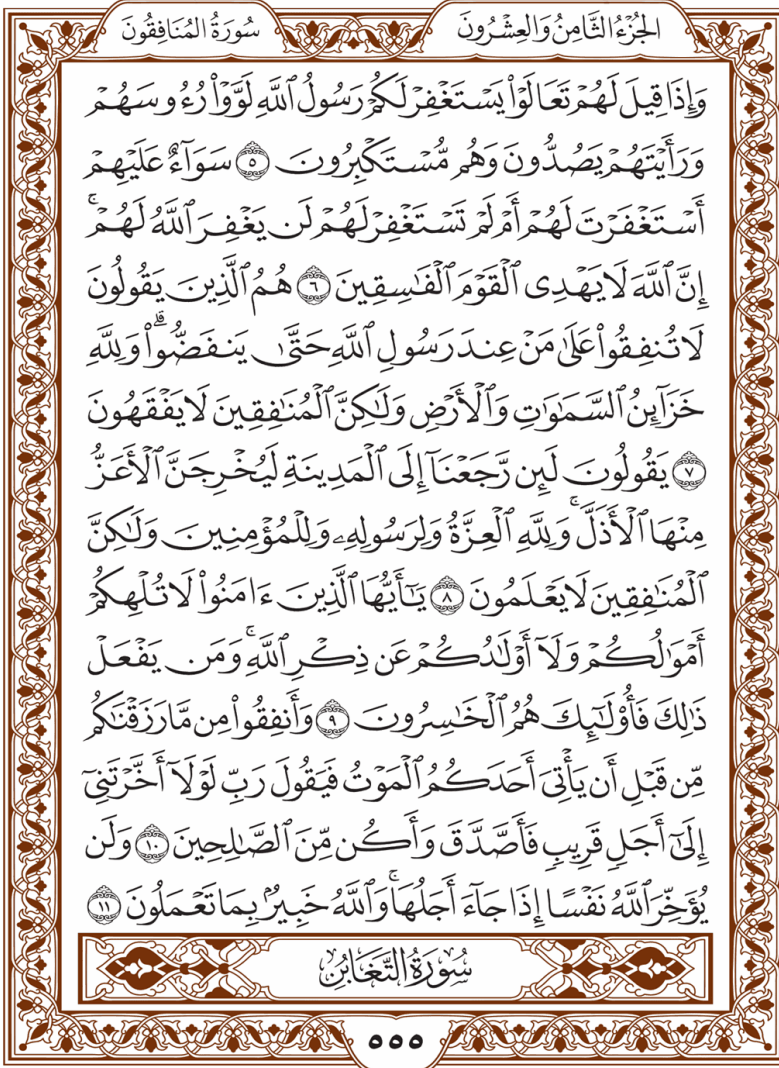 الجُزْءُ الثَّامِنُ وَالعِشْرُونَ
سُورَةُ المُنَافِقُونَ
وَإِذَا قِيلَ لَهُمْ تَعَالَوْا۟ يَسْتَغْفِرْ لَكُمْ رَسُولُ ٱللَّهِ لَوَّوْا۟ رُءُوسَهُمْ
وَرَأَيْتَهُمْ يَصُدُّونَ وَهُم مُّسْتَكْبِرُونَ ٥ سَوَآءٌ عَلَيْهِمْ
أَسْتَغْفَرْتَ لَهُمْ أَمْ لَمْ تَسْتَغْفِرْ لَهُمْ لَن يَغْفِرَ ٱللَّهُ لَهُمْ ۚ
إِنَّ ٱللَّهَ لَا يَهْدِى ٱلْقَوْمَ ٱلْفَـٰسِقِينَ ٦ هُمُ ٱلَّذِينَ يَقُولُونَ
لَا تُنفِقُوا۟ عَلَىٰ مَنْ عِندَ رَسُولِ ٱللَّهِ حَتَّىٰ يَنفَضُّوا۟ ۗ وَلِلَّهِ
خَزَآئِنُ ٱلسَّمَـٰوَٰتِ وَٱلْأَرْضِ وَلَـٰكِنَّ ٱلْمُنَـٰفِقِينَ لَا يَفْقَهُونَ
٧ يَقُولُونَ لَئِن رَّجَعْنَآ إِلَى ٱلْمَدِينَةِ لَيُخْرِجَنَّ ٱلْأَعَزُّ
مِنْهَا ٱلْأَذَلَّ ۚ وَلِلَّهِ ٱلْعِزَّةُ وَلِرَسُولِهِۦ وَلِلْمُؤْمِنِينَ وَلَـٰكِنَّ
ٱلْمُنَـٰفِقِينَ لَا يَعْلَمُونَ ٨ يَـٰٓأَيُّهَا ٱلَّذِينَ ءَامَنُوا۟ لَا تُلْهِكُمْ
أَمْوَٰلُكُمْ وَلَآ أَوْلَـٰدُكُمْ عَن ذِكْرِ ٱللَّهِ ۚ وَمَن يَفْعَلْ
ذَٰلِكَ فَأُو۟لَـٰٓئِكَ هُمُ ٱلْخَـٰسِرُونَ ٩ وَأَنفِقُوا۟ مِن مَّا رَزَقْنَـٰكُم
مِّن قَبْلِ أَن يَأْتِىَ أَحَدَكُمُ ٱلْمَوْتُ فَيَقُولَ رَبِّ لَوْلَآ أَخَّرْتَنِىٓ
إِلَىٰٓ أَجَلٍ قَرِيبٍ فَأَصَّدَّقَ وَأَكُن مِّنَ ٱلصَّـٰلِحِينَ ١٠ وَلَن
يُؤَخِّرَ ٱللَّهُ نَفْسًا إِذَا جَآءَ أَجَلُهَا ۚ وَٱللَّهُ خَبِيرٌۢ بِمَا تَعْمَلُونَ ١١
سُورَةُ التَّغَابُنِ
٥٥٥